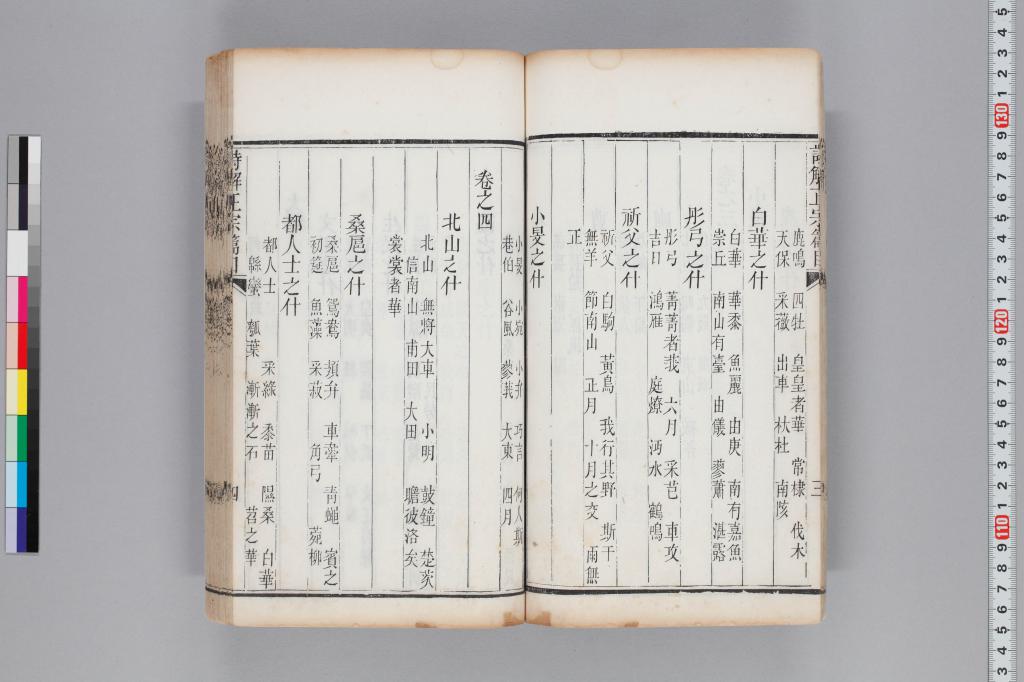 詩解正宗篇目 三
鹿鳴 四牡 皇皇者華 常棣 伐木
天保 采薇 出車 杕杜 南陔
白華之什
白華 華黍 魚麗 由庚 南有嘉魚
崇丘 南山有臺 由儀 蓼蕭 湛露
彤弓之什
彤弓 菁菁者莪 六月 采芑 車攻
吉日 鴻雁 庭燎 沔水 鶴鳴
祈父之什
祈父 白駒 黃鳥 我行其野 斯干
無羊 節南山 正月 十月之交 雨無
正
小旻之什
小旻 小宛 小弁 巧言 何人斯
巷伯 谷風 蓼莪 大東 四月
卷之四
北山之什
北山 無將大車 小明 鼓鐘 楚茨
信南山 甫田 大田 瞻彼洛矣
裳裳者華
桑扈之什
桑扈 鴛鴦 頍弁 車舝 青蠅 賓之
初筵 魚藻 采菽 角弓 菀柳
都人士之什
都人士 采綠 黍苗 隰桑 白華
緜蠻 瓠葉 漸漸之石 苕之華
詩解正宗篇目 四
3 4 5 6 7 8 9 110 1 2 3 4 5 6 7 8 9 120 1 2 3 4 5 6 7 8 9 130 1 2 3 4 5